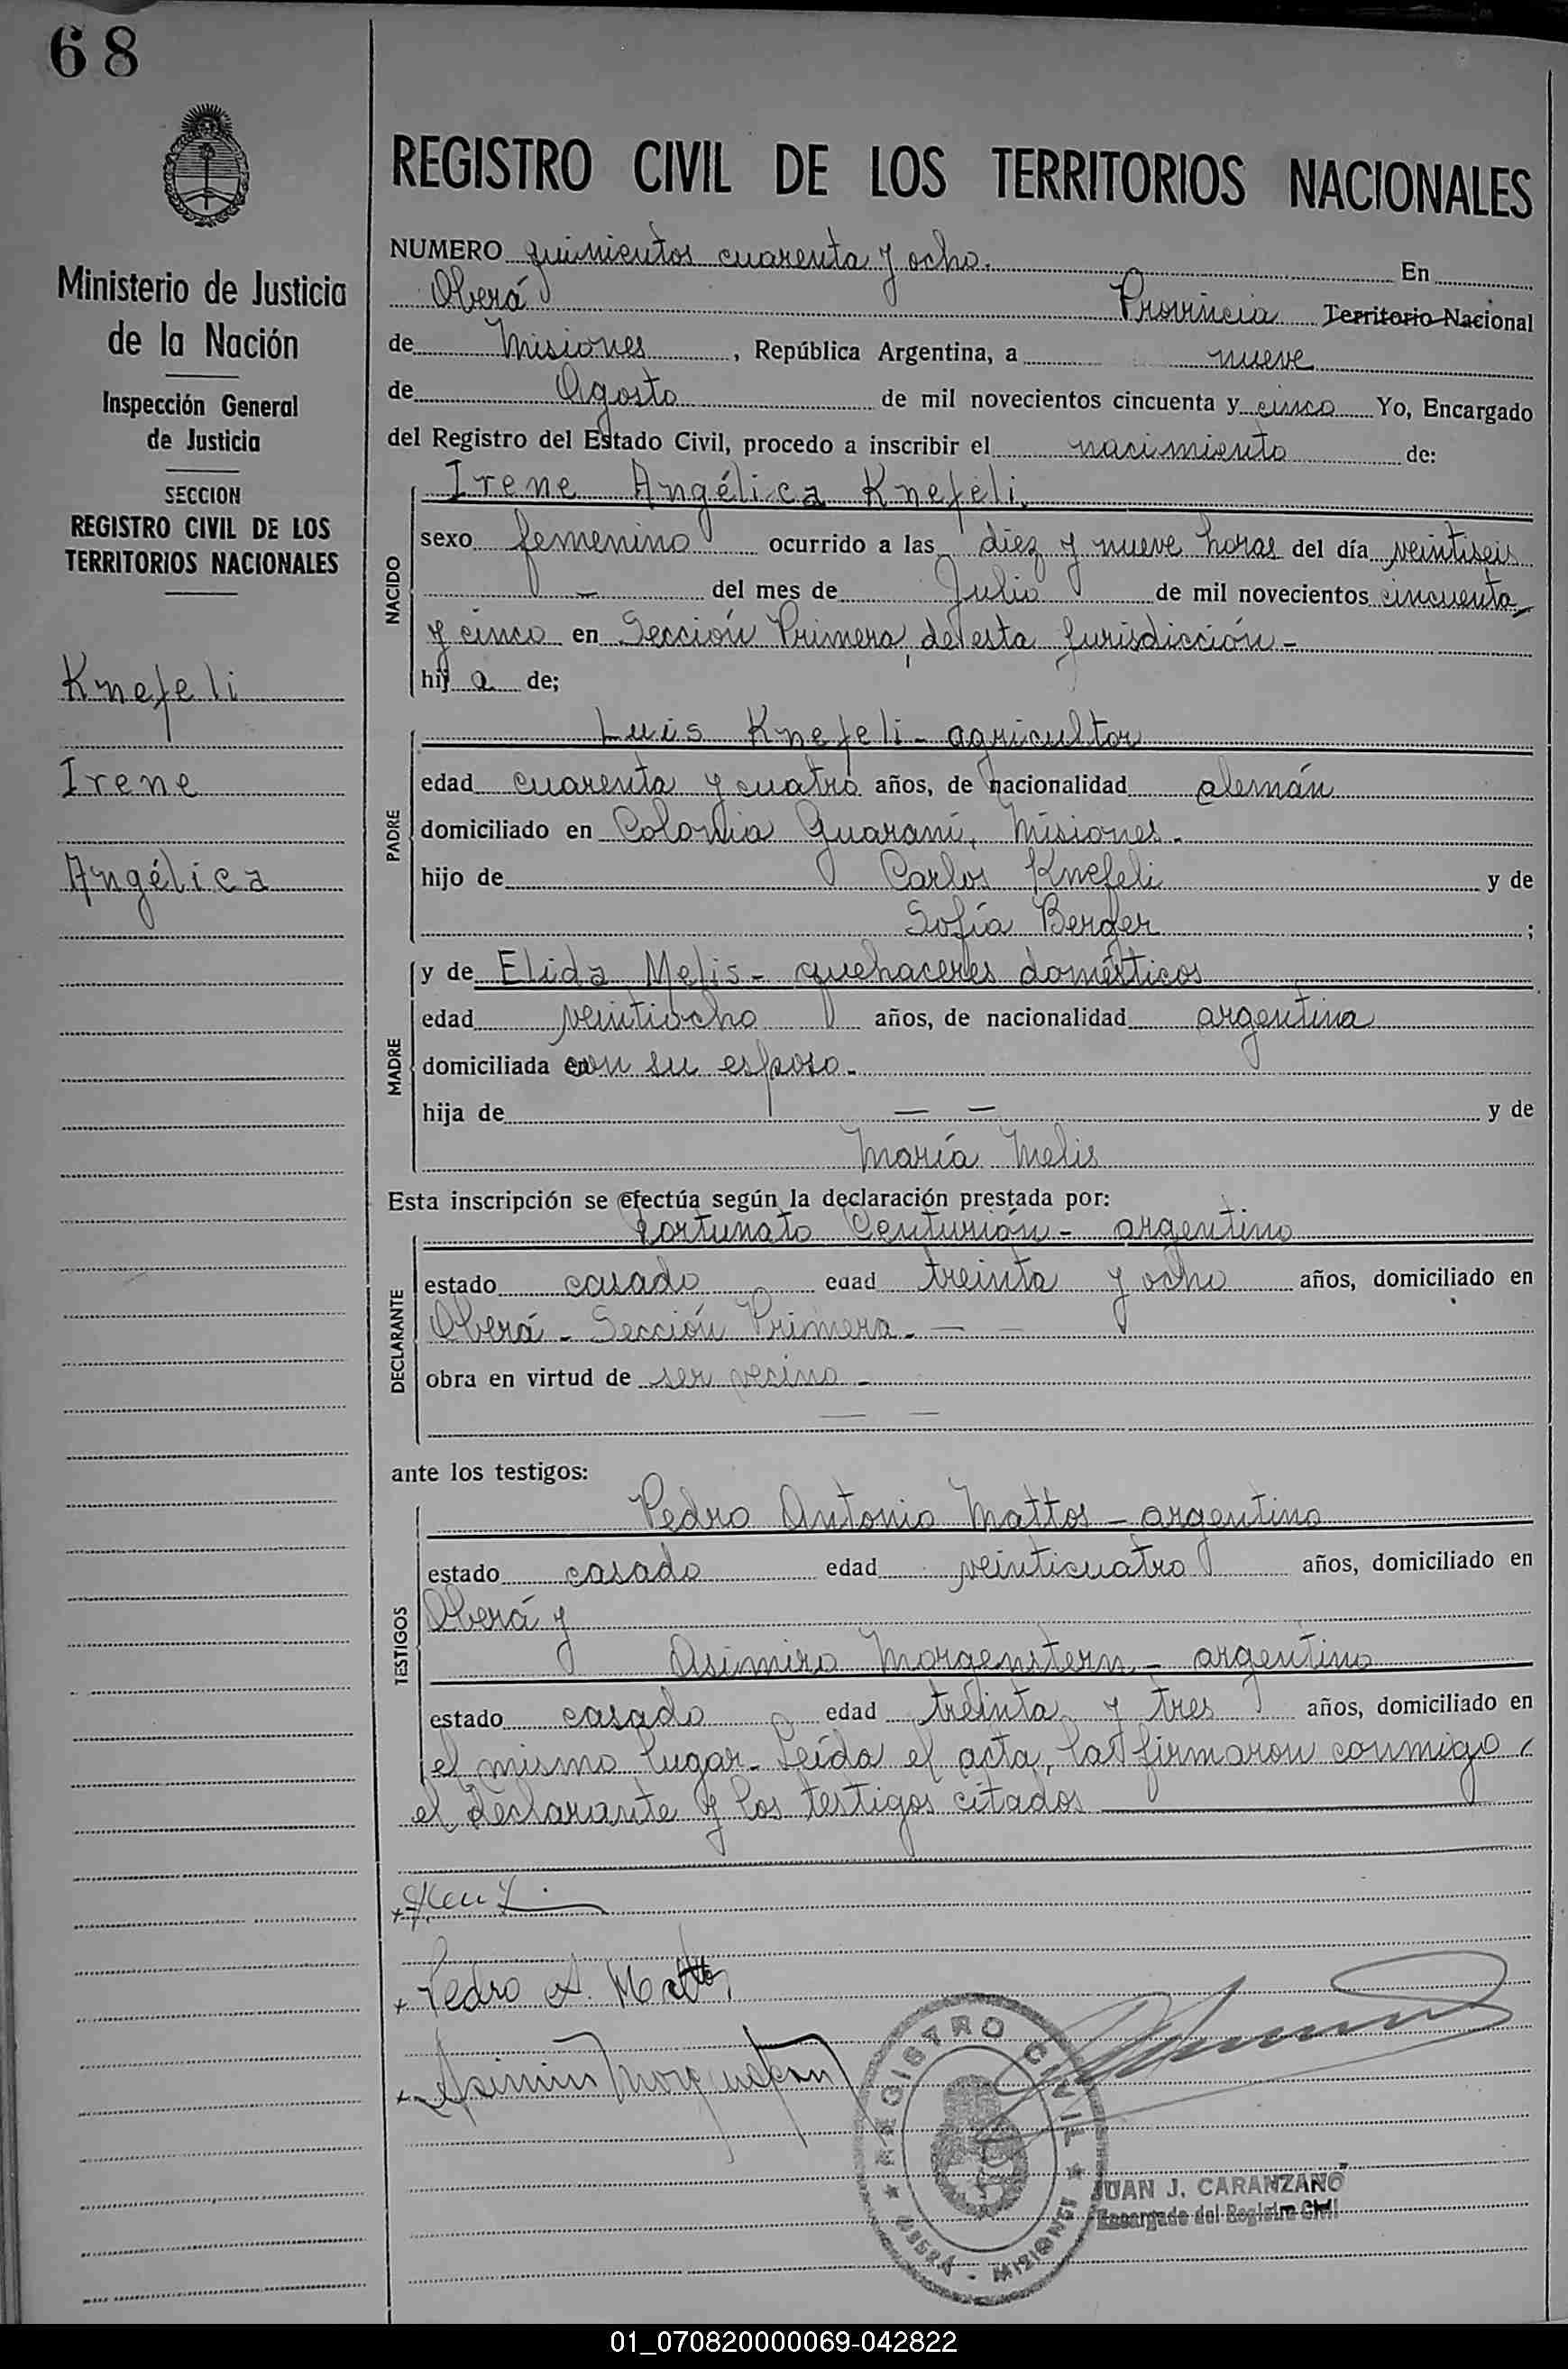 68
Ministerio de Justicia
de la Nación
Inspección General
de Justicia
SECCION
REGISTRO CIVIL DE LOS
TERRITORIOS NACIONALES
Knefeli
Irene
Angélica
REGISTRO CIVIL DE LOS TERRITORIOS NACIONALES
NUMERO quinientos cuarenta y ocho. En
Oberá Provincia Territorio Nacional
de Misiones, República Argentina, a nueve
de Agosto de mil novecientos cincuenta y cinco Yo, Encargado
del Registro del Estado Civil, procedo a inscribir el nacimiento de:
NACIDO
Irene Angélica Knefeli
sexo femenino ocurrido a las diez y nueve horas del día veintiseis
— del mes de Julio de mil novecientos cincuenta
y cinco en Sección Primera, de esta Jurisdicción -
hij a de;
PADRE
Luis Knefeli - agricultor
edad cuarenta y cuatro años, de nacionalidad alemán
domiciliado en Colonia Guaraní, Misiones.
hijo de Carlos Knefeli y de
Sofía Berger ;
MADRE
y de Elida Melis - quehaceres domésticos
edad veintiocho años, de nacionalidad argentina
domiciliada con su esposo.
hija de — — y de
María Melis
Esta inscripción se efectúa según la declaración prestada por:
DECLARANTE
Fortunato Centurión - argentino
estado casado edad treinta y ocho años, domiciliado en
Oberá - Sección Primera. — —
obra en virtud de ser vecino -
— —
ante los testigos:
TESTIGOS
Pedro Antonio Mattos - argentino
estado casado edad veinticuatro años, domiciliado en
Oberá y
Asimiro Morgenstern - argentino
estado casado edad treinta y tres años, domiciliado en
el mismo lugar. Leída el acta, la firmaron conmigo,
el declarante y los testigos citados
x
x Pedro A. Mattos
x Asimiro Morgenstern
REGISTRO CIVIL
OBERA - MISIONES
JUAN J. CARANZANO
Encargado del Registro Civil
01_070820000069-042822